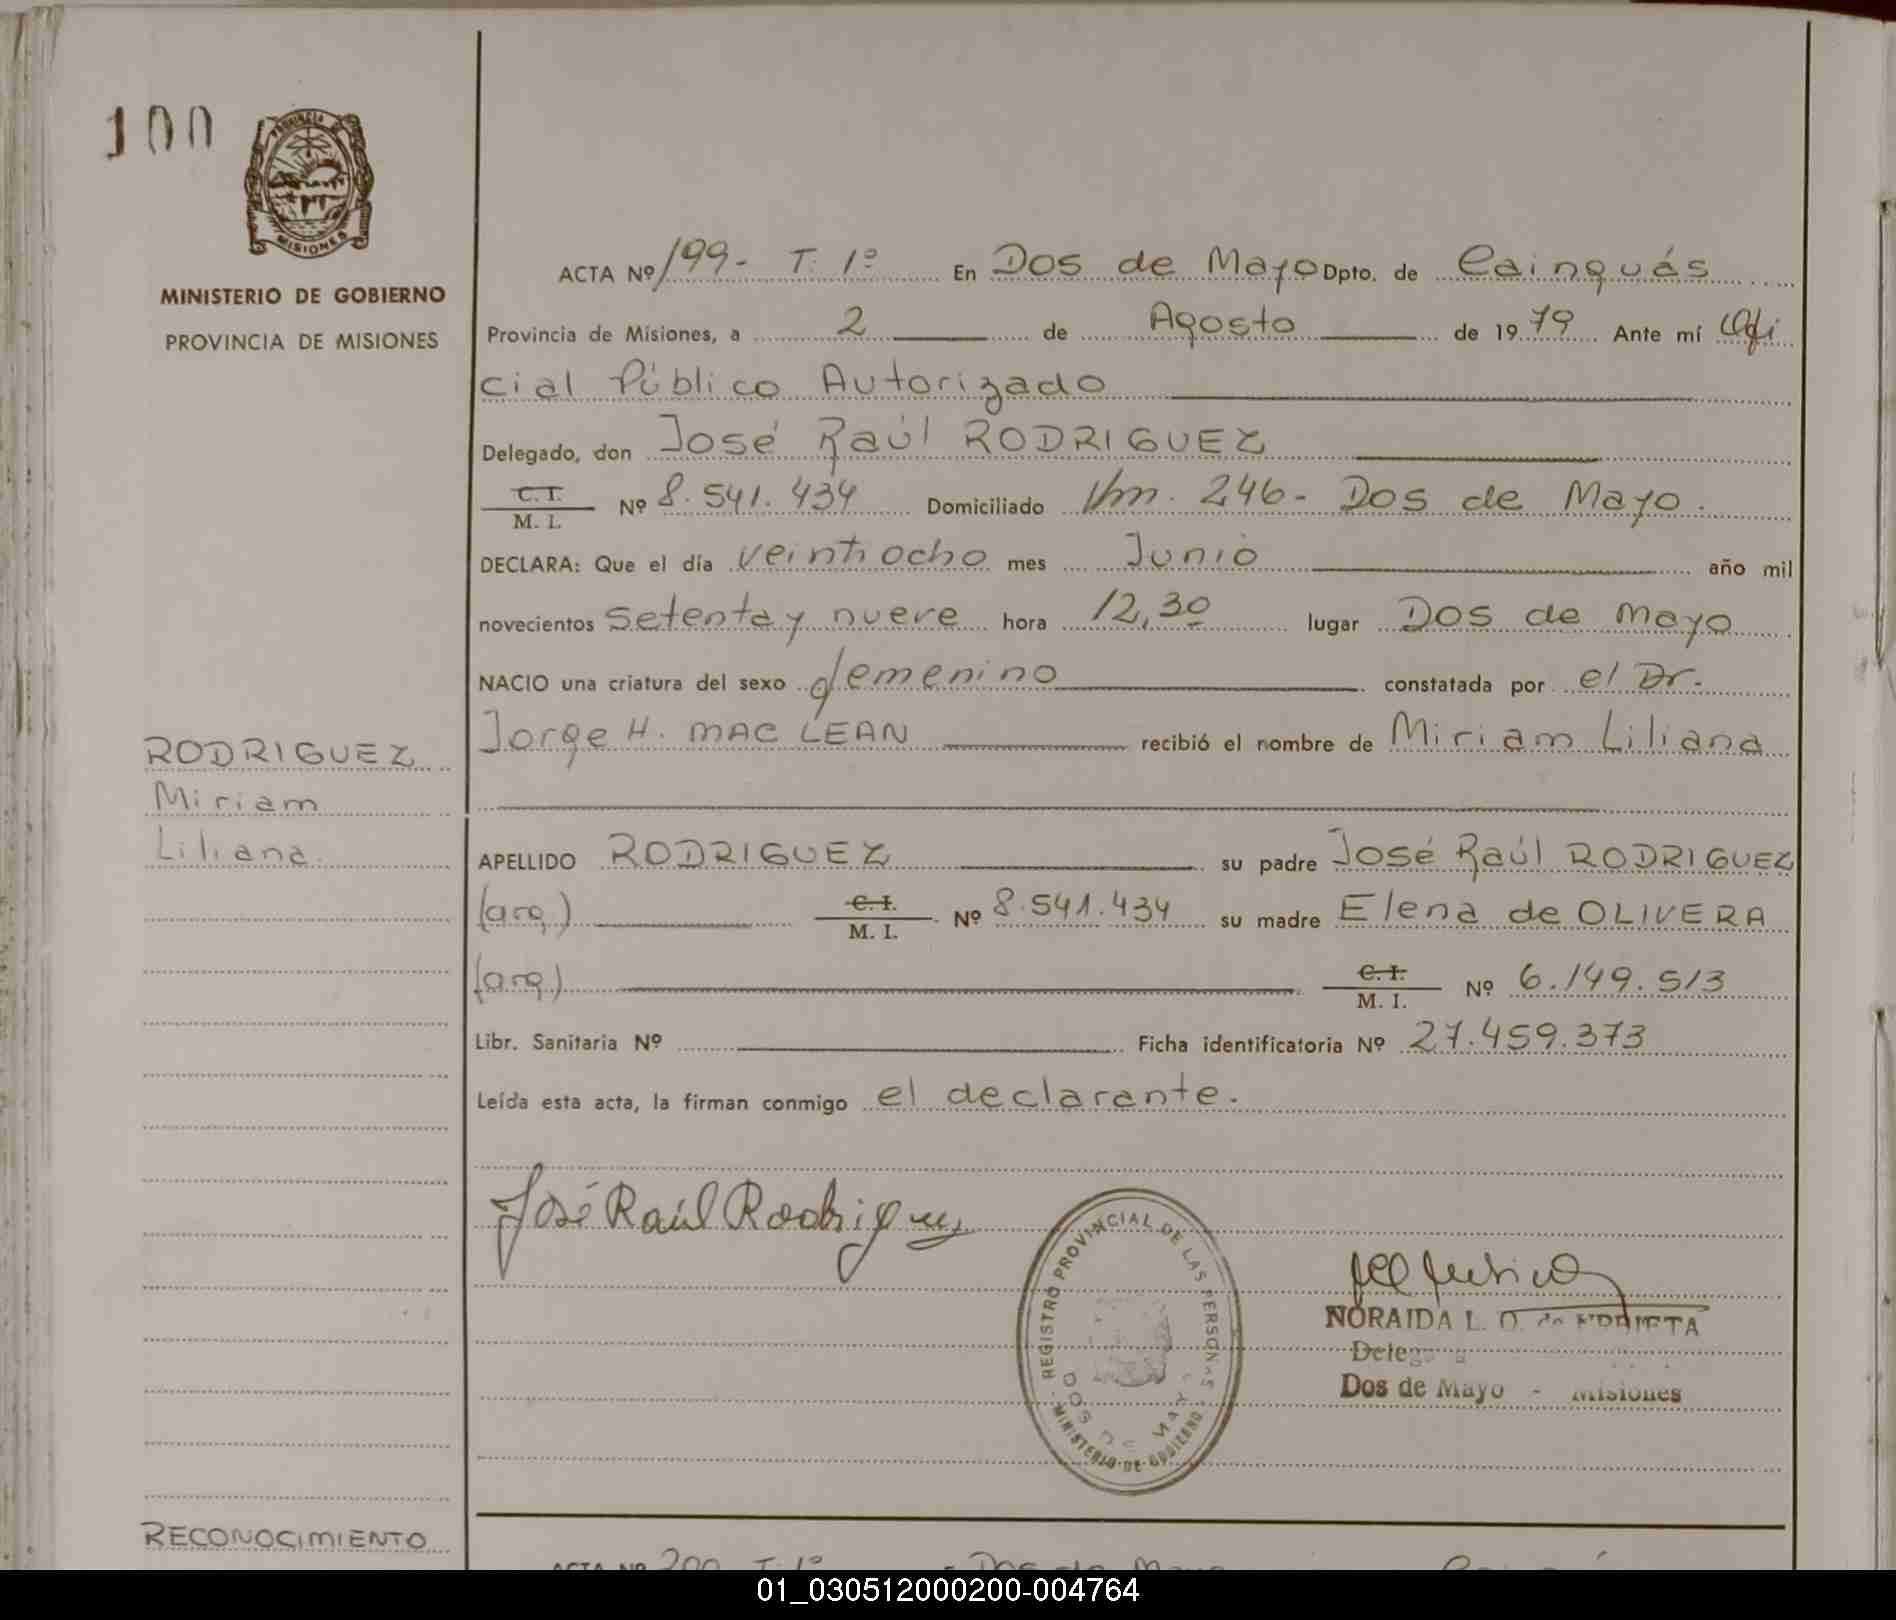 100
PROVINCIA DE
MISIONES
MINISTERIO DE GOBIERNO
PROVINCIA DE MISIONES
ACTA Nº 199- T. 1º En Dos de Mayo Dpto. de Cainguás
Provincia de Misiones, a 2 de Agosto de 1979 Ante mí Ofi
cial Público Autorizado
Delegado, don José Raúl RODRIGUEZ
C. I. / M. I. Nº 8.541.434 Domiciliado Km. 246- Dos de Mayo.
DECLARA: Que el día veintiocho mes Junio año mil
novecientos setenta y nueve hora 12,30 lugar Dos de Mayo
NACIO una criatura del sexo femenino constatada por el Dr.
Jorge H. MAC LEAN recibió el nombre de Miriam Liliana
RODRIGUEZ
Miriam
Liliana.
APELLIDO RODRIGUEZ su padre José Raúl RODRIGUEZ
(arg.) C. I. / M. I. Nº 8.541.434 su madre Elena de OLIVERA
(arg.) C. I. / M. I. Nº 6.149.513
Libr. Sanitaria Nº Ficha identificatoria Nº 27.459.373
Leída esta acta, la firman conmigo el declarante.
José Raúl Rodriguez
REGISTRO PROVINCIAL DE LAS PERSONAS
DOS DE MAYO
MINISTERIO DE GOBIERNO
NORAIDA L. O. de URRIETA
Dos de Mayo - Misiones
RECONOCIMIENTO
ACTA Nº 200 T. 1º Dos de Mayo
01_030512000200-004764